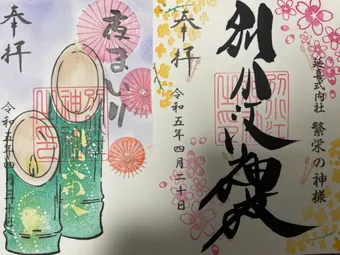 奉拝
夜まいり
別小江神社
奉拝
延喜式内社 繁栄の神様
別小江神社
令和五年四月二十日